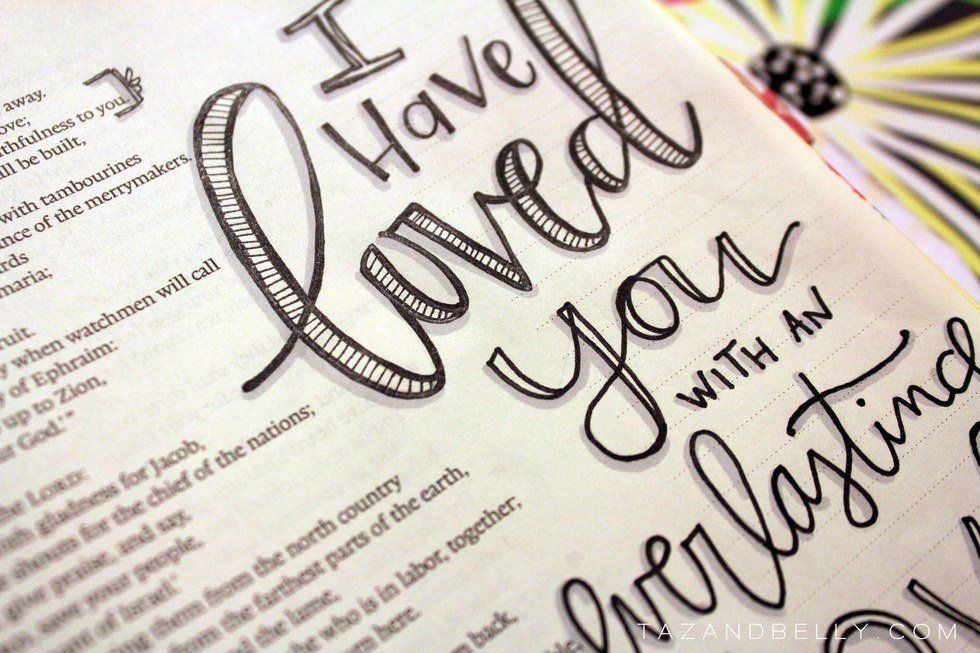 away.
ove;
aithfulness to you.
ll be built,
with tambourines
nce of the merrymakers.
ards
maria;
ruit.
y when watchmen will call
y of Ephraim:
up to Zion,
ur God.’”
he LORD:
gladness for Jacob,
shouts for the chief of the nations;
give praise, and say,
your people,
of Israel.’
them from the north country
from the farthest parts of the earth,
and the lame,
she who is in labor, together;
here.
back,
I
Have
loved
you
WITH AN
everlasting
TAZANDBELLY.COM